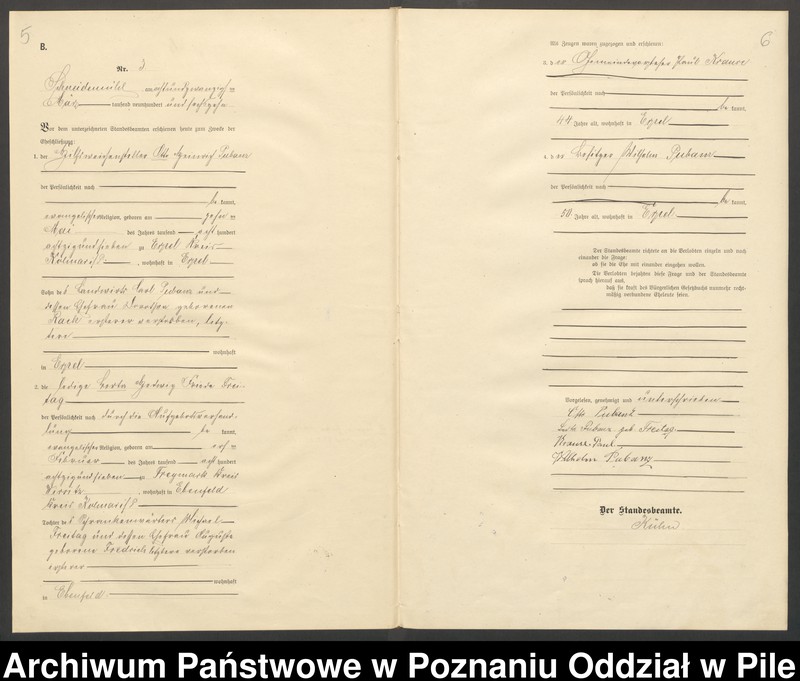 5
B.
Nr. 3
Schneidemühl, am achtundzwanzigsten
März tausend neunhundert und sechzehn
Vor dem unterzeichneten Standesbeamten erschienen heute zum Zwecke der
Eheschließung:
1. der Hilfsweichensteller Otto Heinrich Pubanz
der Persönlichkeit nach
be kannt,
evangelischer Religion, geboren am
Mai des Jahres tausend acht hundert
achtzigundsieben zu Erpel Kreis
Kolmar i/P., wohnhaft in Erpel
Sohn des Landwirts Carl Pubanz und
dessen Ehefrau geborenen
Radke ersterer verstorben, letz-
tere
wohnhaft
in Erpel
2. die ledige Berta Hedwig Frieda Frei-
tag
der Persönlichkeit nach durch die Aufgebotsverhand-
lung be kannt,
evangelischer Religion, geboren am
Februar des Jahres tausend acht hundert
achtzigundsieben zu Freymark Kreis
Wirsitz, wohnhaft in Ebenfeld
Kreis Kolmar i/P
Tochter des Schrankenwärters Michael
Freitag und dessen Ehefrau Auguste
geborene Fredrich letztere verstorben
ersterer
wohnhaft
in Ebenfeld
6
Als Zeugen waren zugezogen und erschienen:
3. der Gemeindevorsteher Paul Krause
der Persönlichkeit nach
be kannt,
44 Jahre alt, wohnhaft in Erpel
4. der Besitzer Wilhelm Pubanz
der Persönlichkeit nach
be kannt,
50 Jahre alt, wohnhaft in Erpel
Der Standesbeamte richtete an die Verlobten einzeln und nach
einander die Frage:
ob sie die Ehe mit einander eingehen wollen.
Die Verlobten bejahten diese Frage und der Standesbeamte
sprach hierauf aus,
daß sie kraft des Bürgerlichen Gesetzbuchs nunmehr recht-
mäßig verbundene Eheleute seien.
Vorgelesen, genehmigt und unterschrieben
Otto Pubanz
Berta Pubanz geb. Freitag
Krause Paul
Wilhelm Pubanz
Der Standesbeamte.
Kühn
Archiwum Państwowe w Poznaniu Oddział w Pile